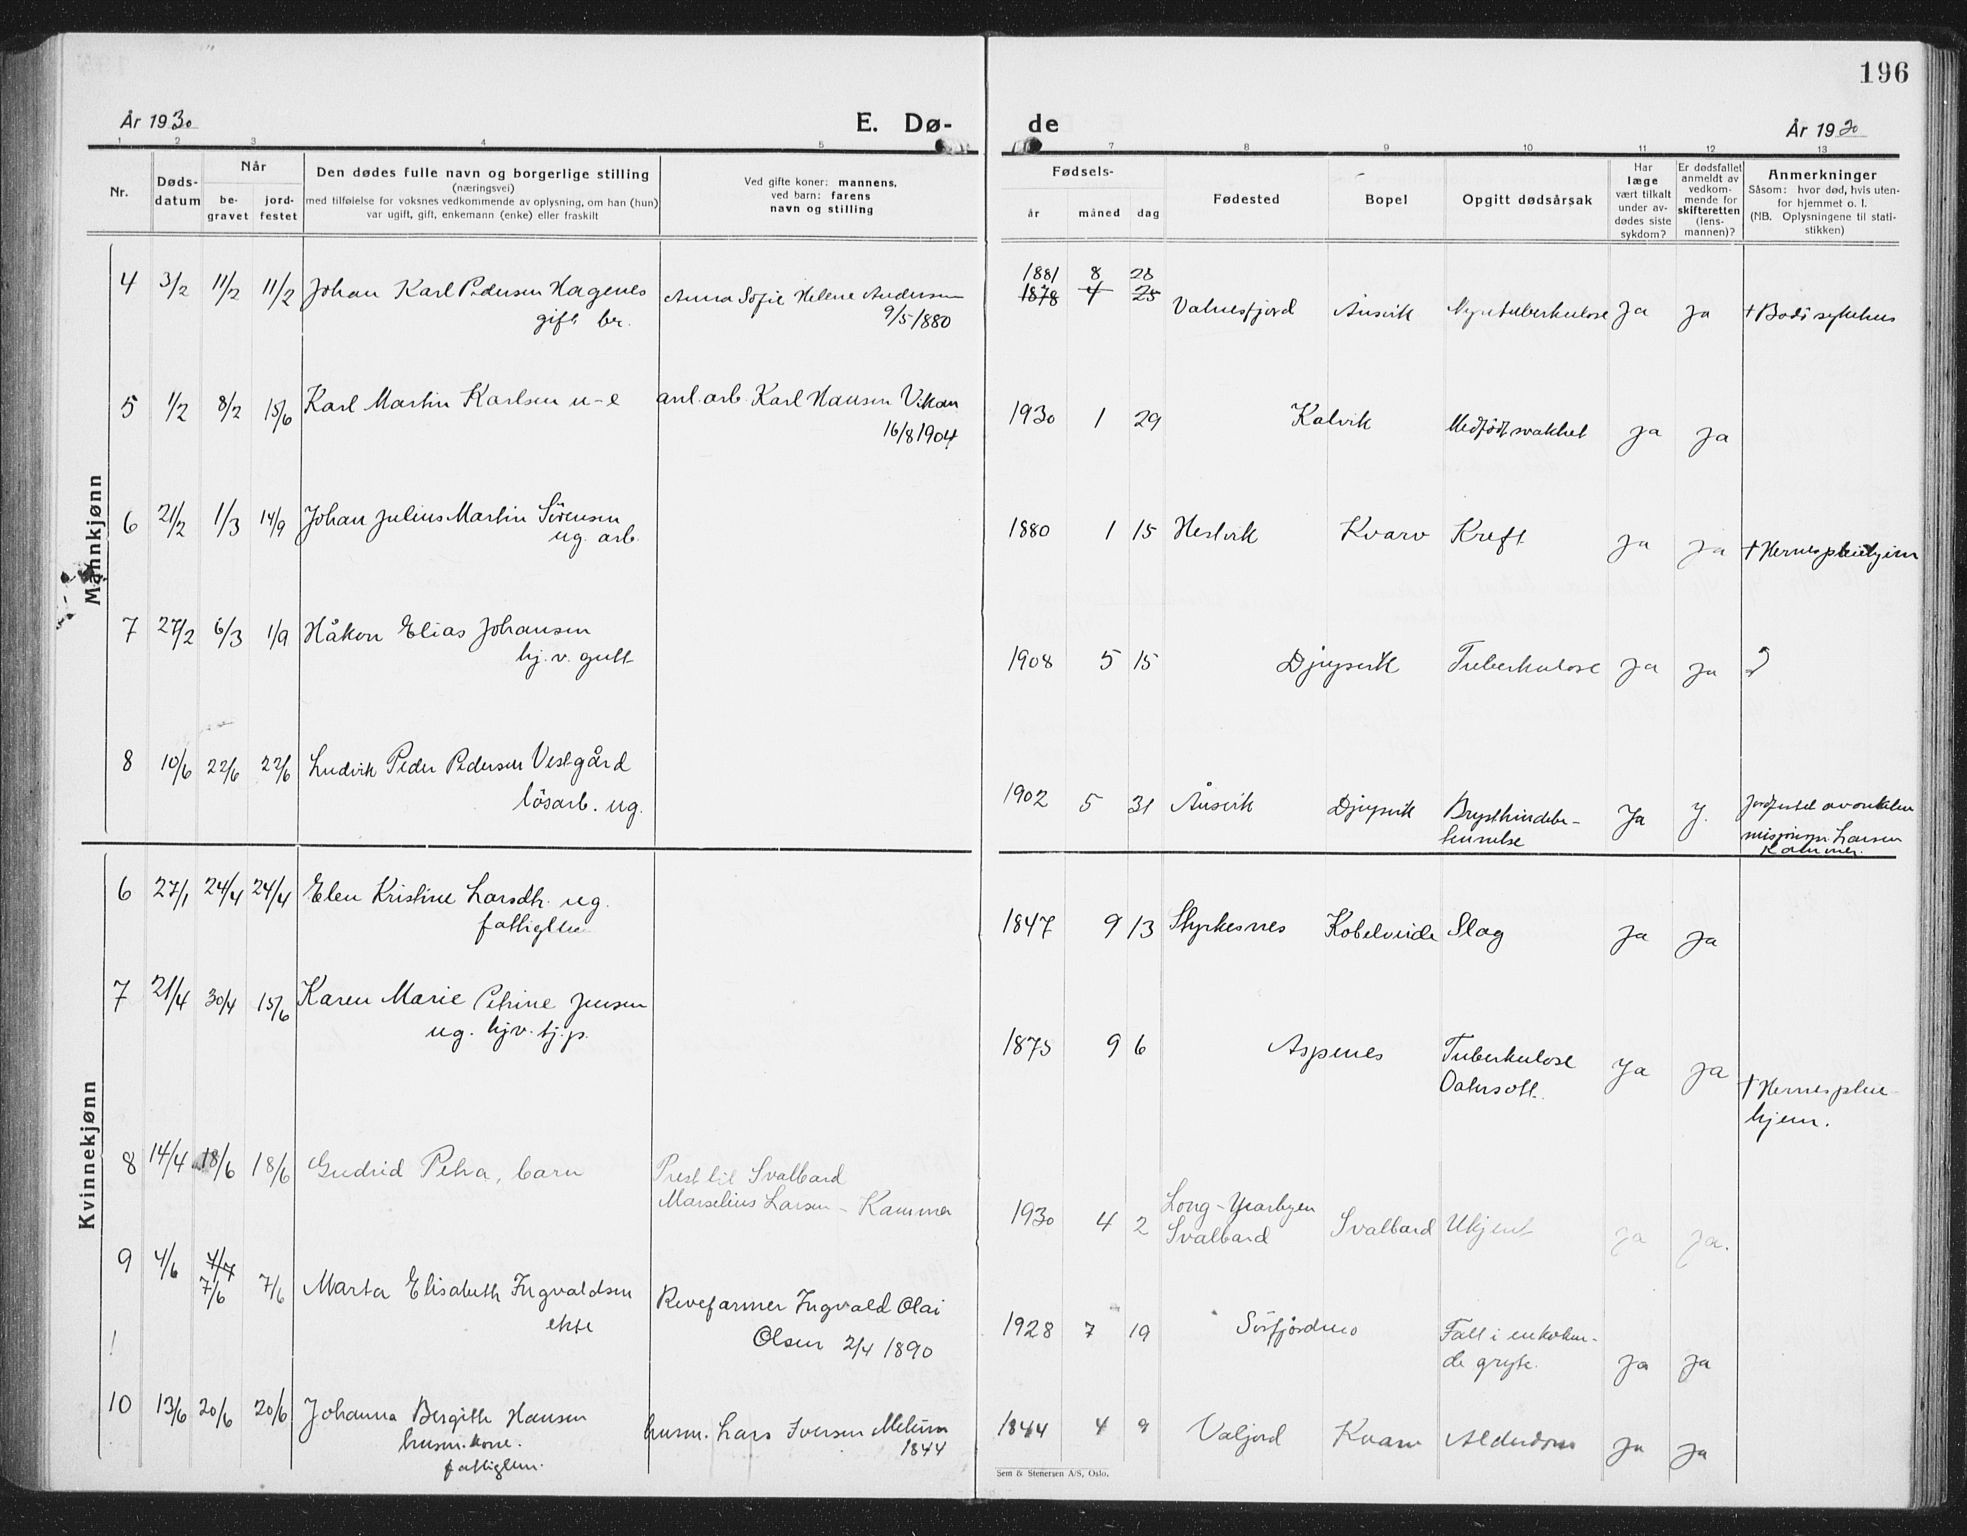 196
År 1930
E. Dø-
de
År 1930
1 2 3 4 5 7 8 9 10 11 12 13
Nr.
Døds-
datum
Når
be-
gravet
jord-
festet
Den dødes fulle navn og borgerlige stilling
(næringsvei)
med tilføielse for voksnes vedkommende av oplysning, om han (hun)
var ugift, gift, enkemann (enke) eller fraskilt
Ved gifte koner: mannens,
ved barn: farens
navn og stilling
Fødsels-
år måned dag
Fødested
Bopel
Opgitt dødsårsak
Har
læge
vært tilkalt
under av-
dødes siste
sykdom?
Er dødsfallet
anmeldt av
vedkom-
mende for
skifteretten
(lens-
mannen)?
Anmerkninger
Såsom: hvor død, hvis uten-
for hjemmet o. l.
(NB. Oplysningene til stati-
stikken)
Mannkjønn
4 3/2 11/2 11/2 Johan Karl Pedersen Hagenes Anna Sofie Helene Andersen
gift 9/5 1880
1881 8 28
1878 4 25 Valnesfjord Ånsvik Nyretuberkulose Ja Ja + Bodö sykehus
5 1/2 8/2 15/6 Karl Martin Karlsen u-e anl. arb. Karl Hansen Vikan
16/8 1904
1930 1 29 Kalvik Medfödt svakhet Ja Ja
6 21/2 1/3 14/9 Johan Julius Martin Sörensen
ug. arb.
1880 1 15 Hestvik Kvarv Kreft Ja Ja + Hernes pleiehjem
7 27/2 6/3 1/9 Håkon Elias Johansen
hj. v. gutt
1908 5 15 Djupvik Tuberkulose Ja Ja
8 10/6 22/6 22/6 Ludvik Peder Pedersen Vestgård
lösarb. ug.
1902 5 31 Ånsvik Djupvik Brysthindebe-
tennelse Ja J. Jordfestet av onkelen
misjonspr. Larsen
Kammer.
Kvinnekjønn
6 27/1 24/4 24/4 Elen Kristine Larsdtr. ug.
fattiglem
1847 9 13 Styrkesnes Kobelvide Slag Ja Ja
7 21/4 30/4 15/6 Karen Marie Petrine Jensen
ug. hjv. tj.p.
1875 9 6 Aspenes Tuberkulose
Vatersott. Ja Ja + Hernes pleie-
hjem.
8 14/4 18/6 18/6 Gudrid Petra, barn Prest til Svalbard
Marselius Larsen - Kammer
1930 4 2 Long-Yearbyen
Svalbard Svalbard Ukjent Ja Ja.
9 4/6 7/7
7/6 7/6 Marta Elisabeth Ingvaldsen
ekte
Revefarmer Ingvald Olai
Olsen 2/4 1890
1928 7 19 Sörfjordmo Fall i en koken-
de gryte. Ja Ja
10 13/6 20/6 20/6 Johanna Bergitte Hansen
husm. kone.
fattiglem.
husm. Lars Iversen
1844
1844 4 9 Valjord Kvarv Alderdom Ja Ja
Sem & Stenersen A/S, Oslo.